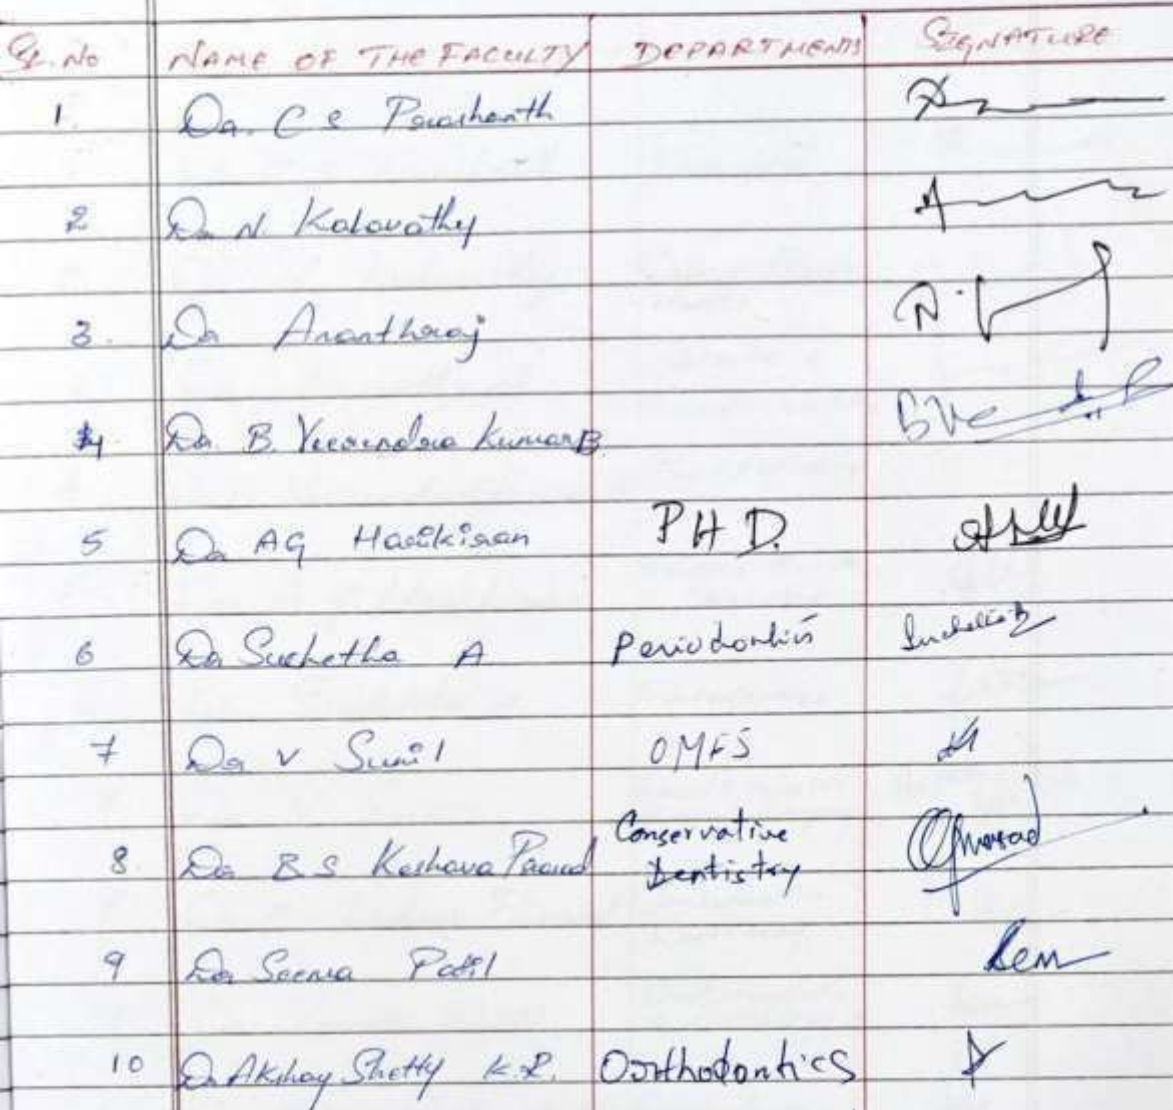 Sl. No NAME OF THE FACULTY DEPARTMENTS SIGNATURE
1. Dr. C S Prashanth
2 Dr N. Kalavathy
3. Dr Ananthraj
4. Dr. B. Veerendra Kumar B
5 Dr AG Harikiran P H D.
6 Dr Suchetha A Periodontics
7 Dr V Sunil OMFS
8. Dr B S Keshava Prasad Conservative
Dentistry
9 Dr Seema Patil
10 Dr Akshay Shetty K.R. Oorthodontics